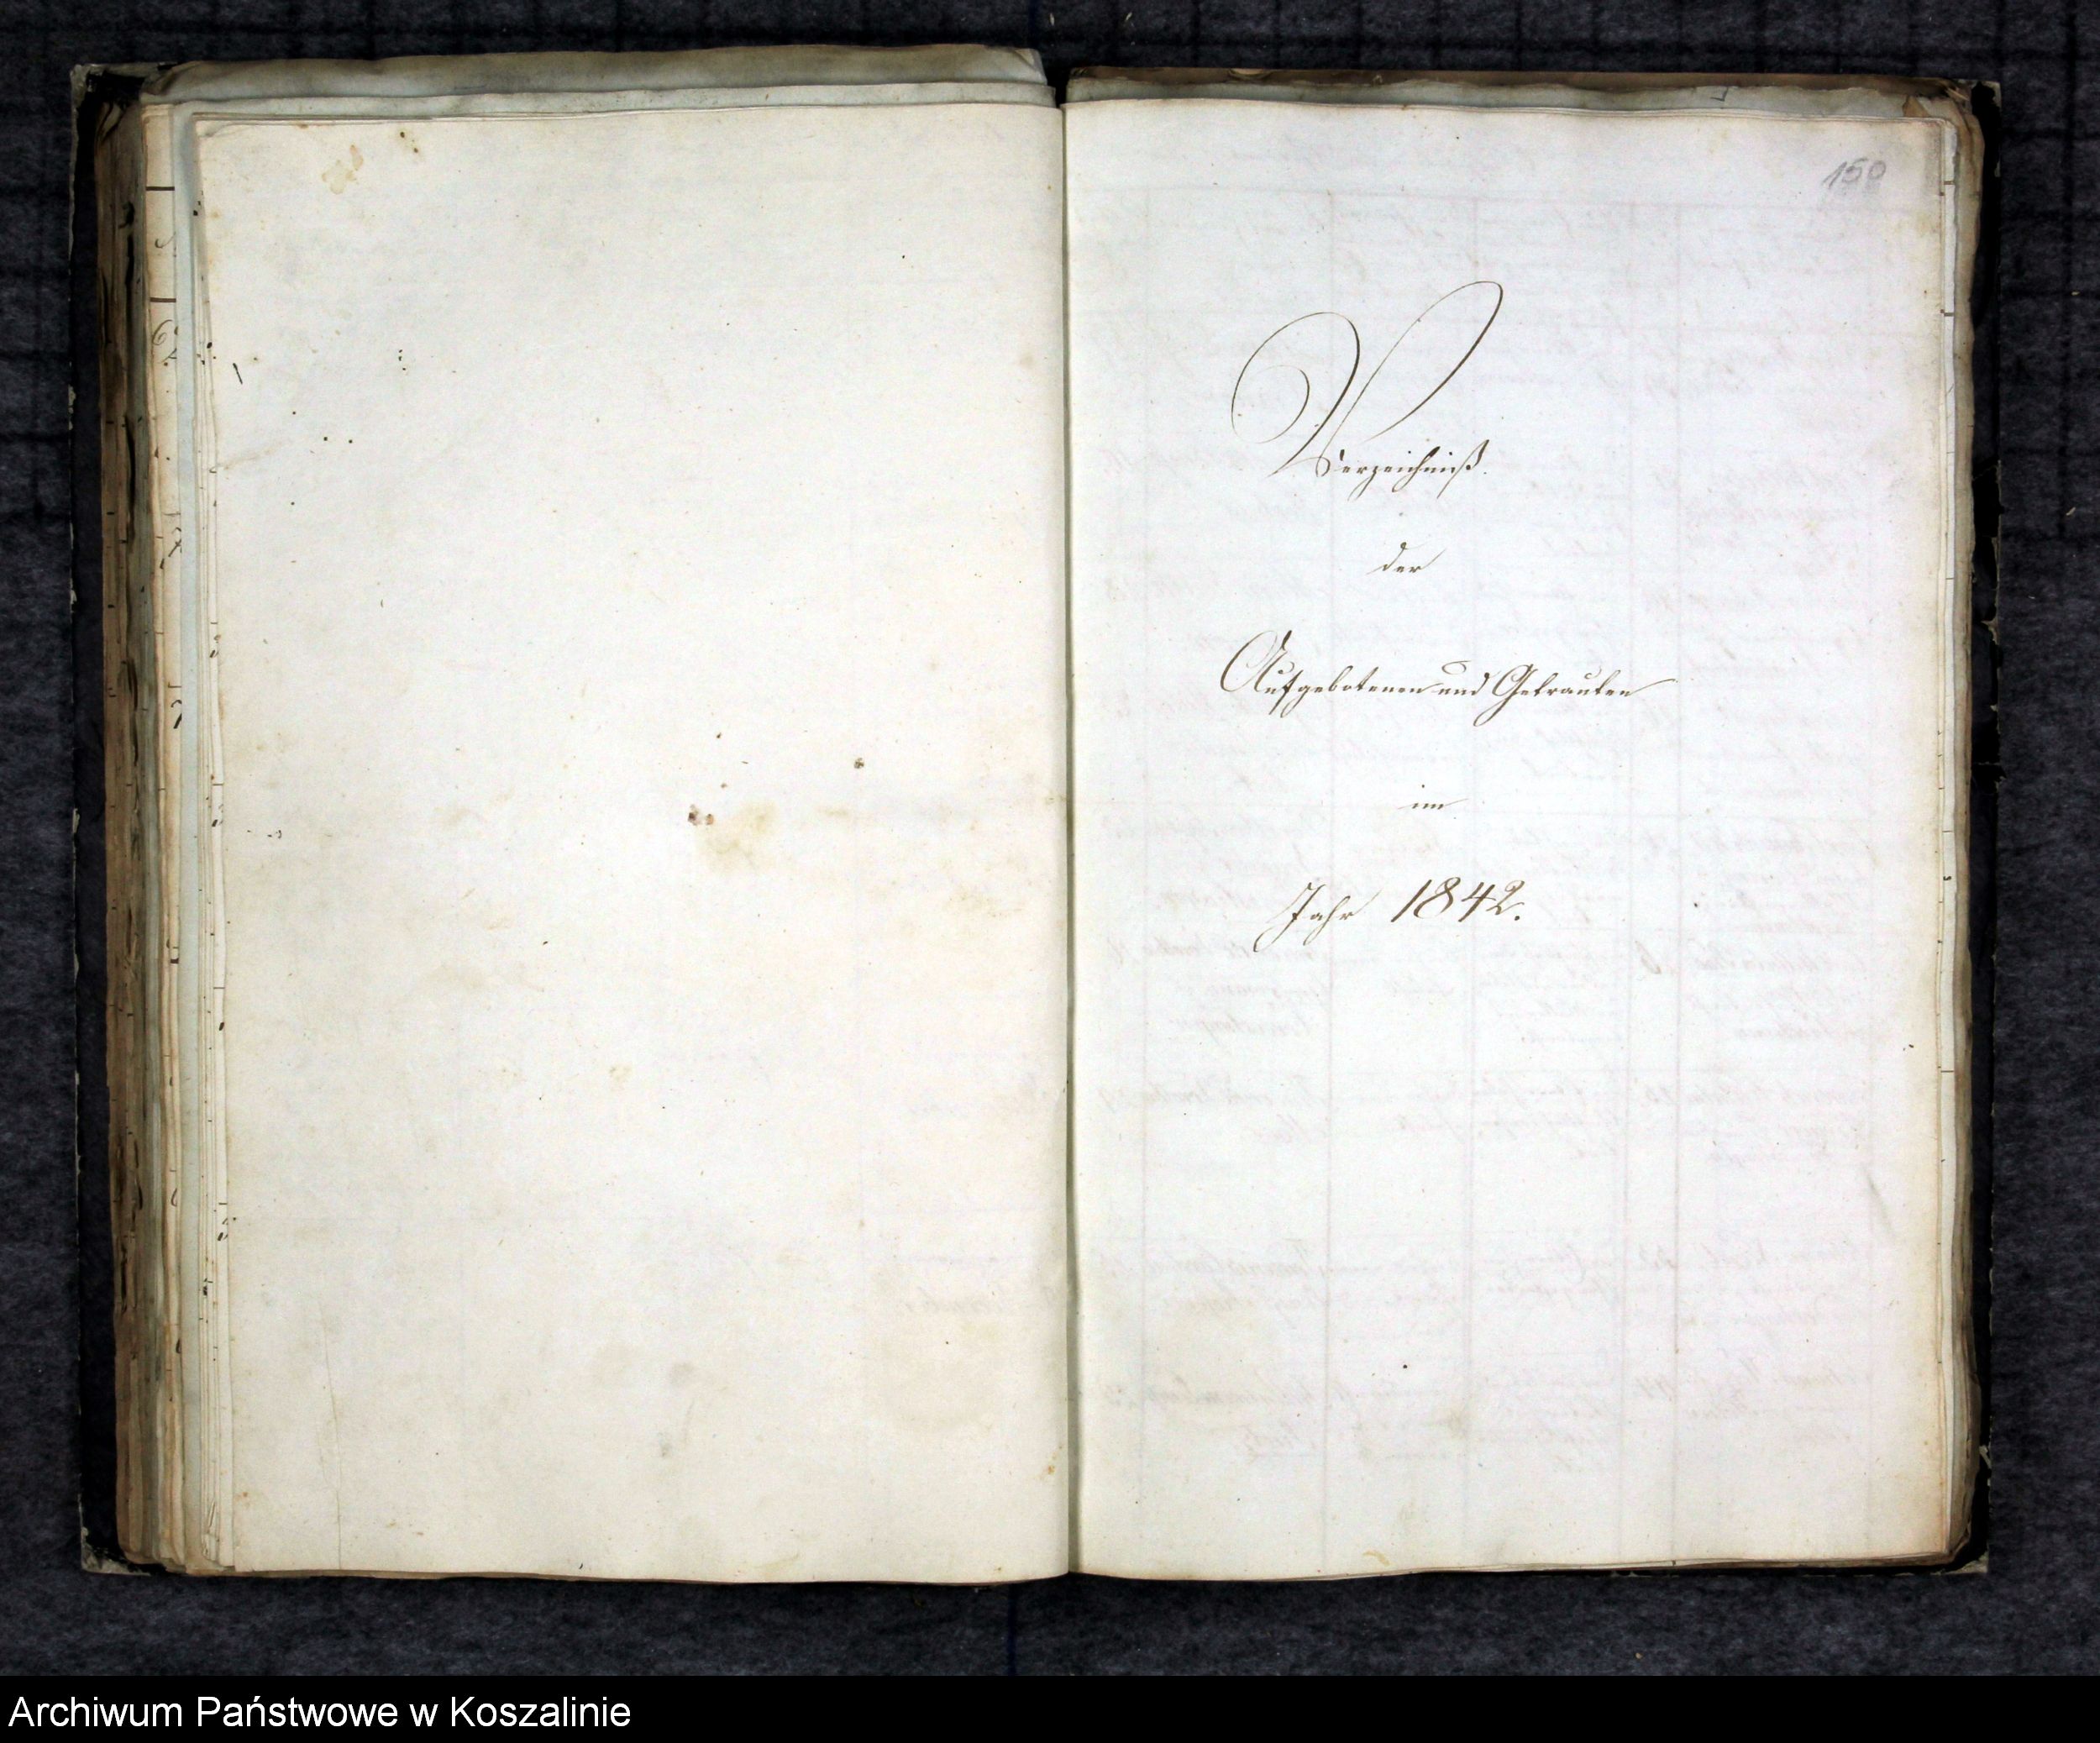 150
Verzeichniß.
der
Aufgebotenen und Getrauten
im
Jahr 1842.
Archiwum Państwowe w Koszalinie